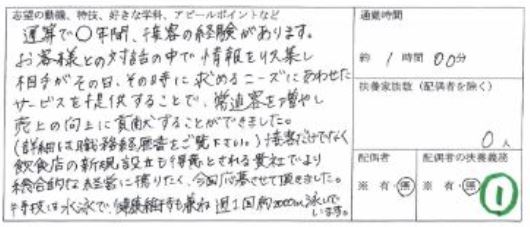 志望の動機、特技、好きな学科、アピールポイントなど
通算で〇年間、接客の経験があります。
お客様との対話の中で情報を収集し
相手がその日、その時に求めるニーズにあわせた
サービスを提供することで、常連客を増やし
売上の向上に貢献することができました。
(詳細は職務経歴書をご覧下さい。)接客だけでなく
飲食店の新規設立も得意とされる貴社でより
総合的な経営に携りたく、今回応募させて頂きました。
特技は水泳で、健康維持も兼ね週1回約2000m泳いで
います。
通勤時間
約 1 時間 00分
扶養家族数(配偶者を除く)
0人
配偶者
※ 有・無
配偶者の扶養義務
※ 有・無
1